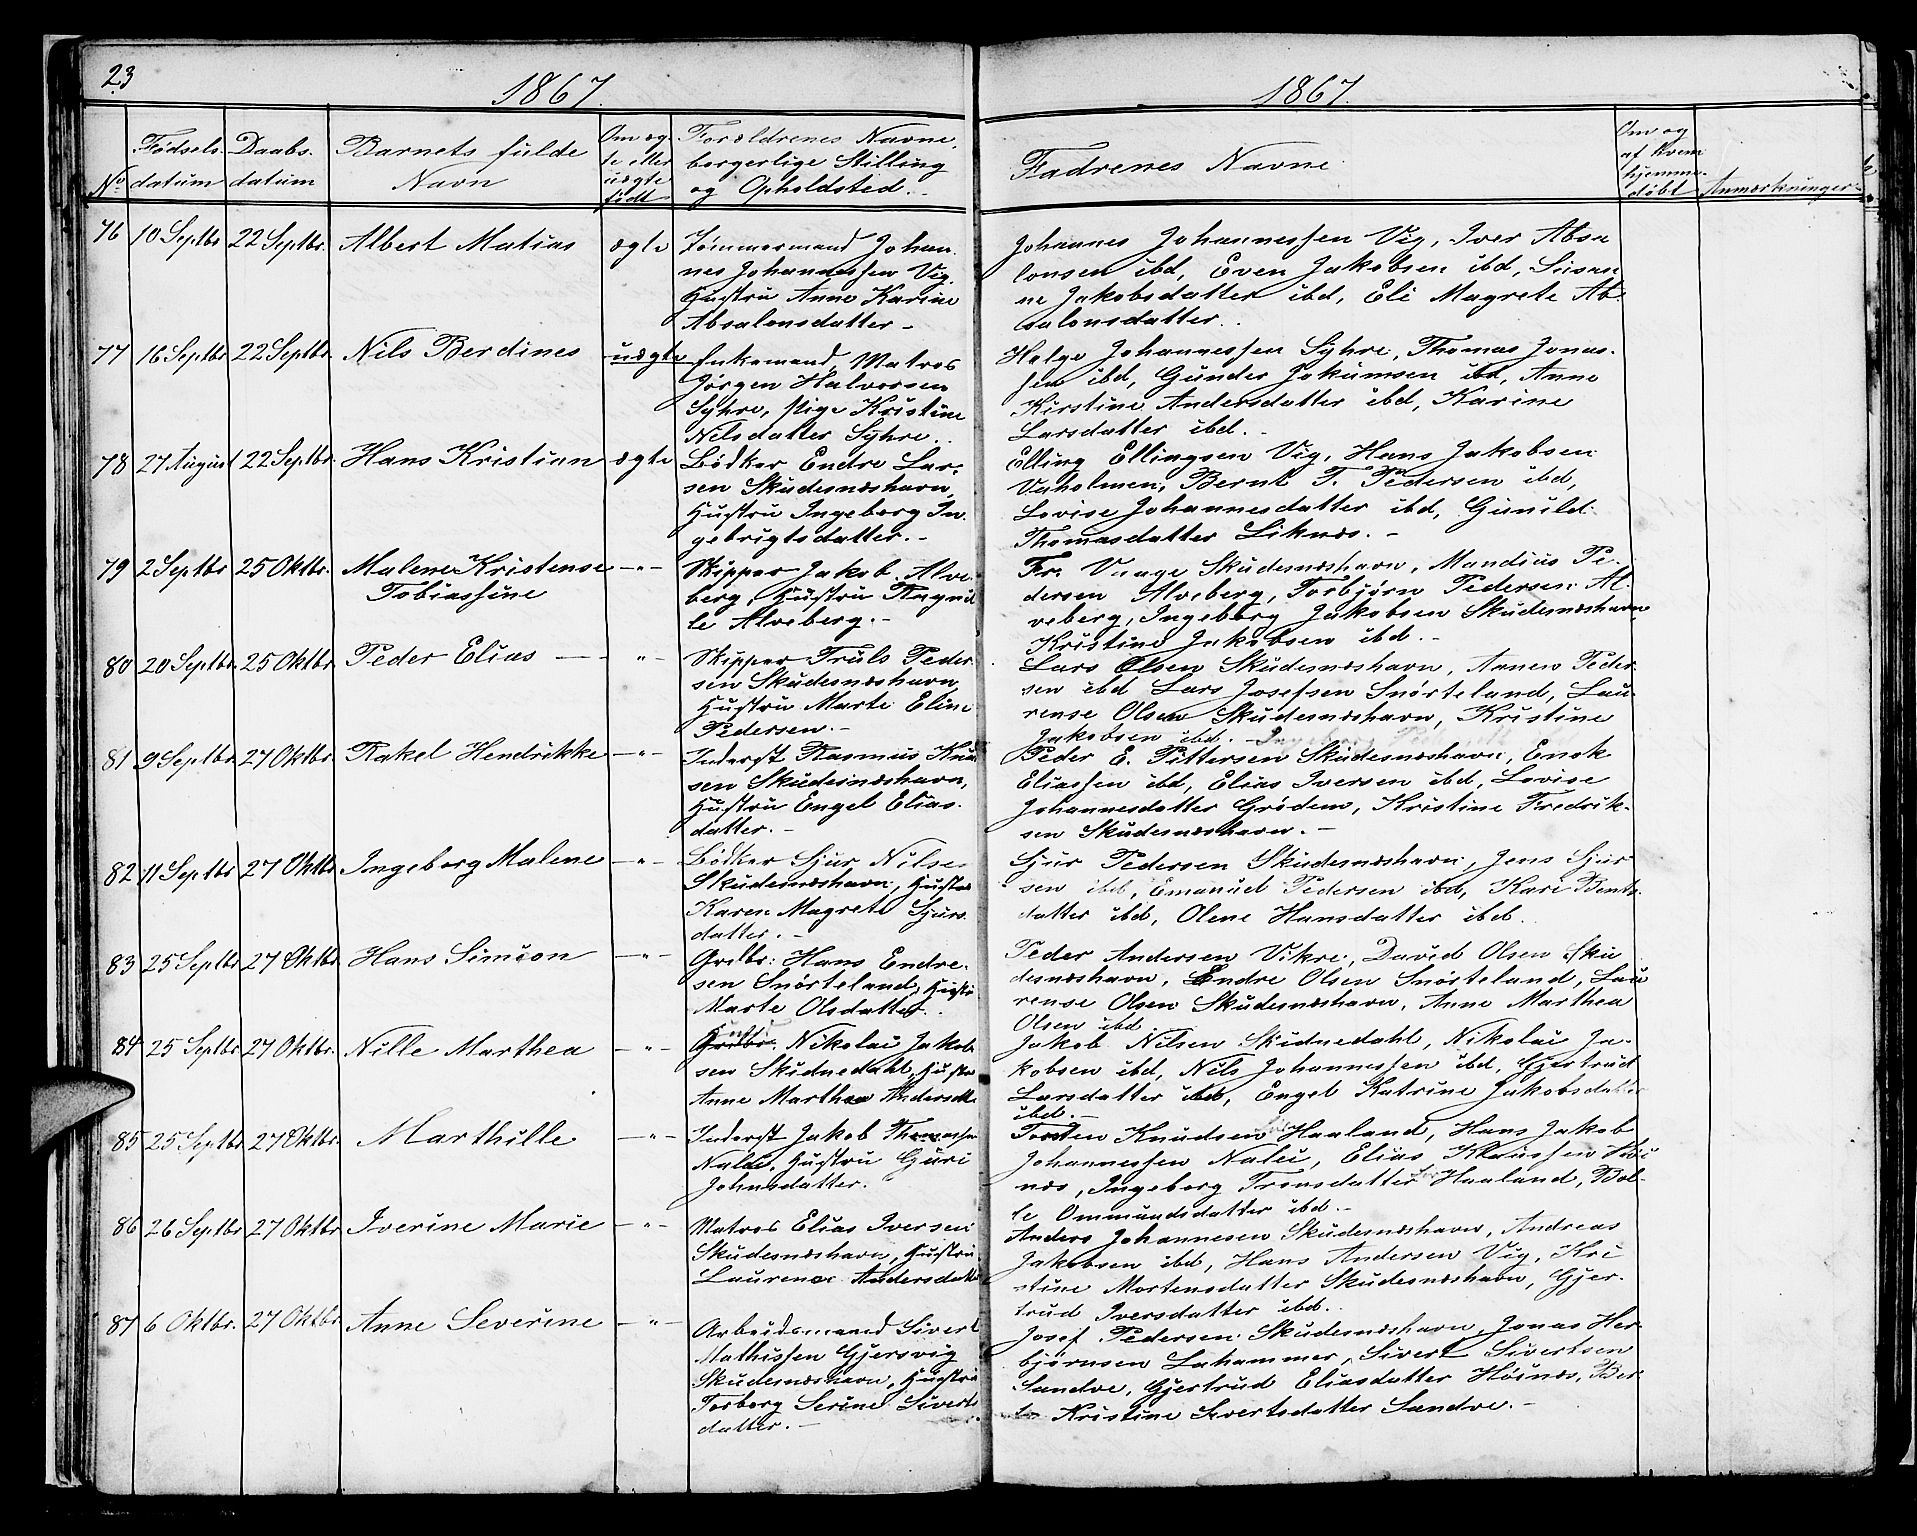 23
1867.
1867.
No
Fødsels-
datum
Daabs-
datum
Barnets fulde
Navn
Om æg-
te eller
uægte
født
Forældrenes Navne,
borgerlige Stilling
og Opholdsted.
Fadrenes Navne
Om og
af hvem
hjemme-
døbt
Anmærkninger
76 10 Septbr. 22 Septbr. Albert Matias ægte Tømmermand Johan-
nes Johannessen Vig,
Hustru Anne Karine
Absalonsdatter -
Johannes Johannessen Vig, Iver Absa
lonsen ibd, Even Jakobsen ibd, Susan
ne Jakobsdatter ibd, Eli Magrete Ab
salonsdatter.
77 16 Septbr 22 Septbr. Nils Berdines uægte Enkemand, Matros
Jørgen Halvorsen
Syhre, Pige Kristine
Nilsdatter Syhre.
Helge Johannessen Syhre, Thomas Jonas-
sen ibd, Gunder Jokumsen ibd, Anne
Kirstine Andersdatter ibd, Karine
Larsdatter ibd. -
78 27 August 22 Septbr. Hans Kristian ægte Bødker Endre Lar-
sen Skudesnæshavn,
Hustru Ingeborg In-
gebrigtsdatter. -
Elling Ellingsen Vig, Hans Jakobsen
Vaholmen, Bernt T. Pedersen ibd,
Lovise Johannesdatter ibd, Gunild
Thomasdatter Liknæs. -
79 2 Septbr 25 Oktbr. Malene Kristense
Tobiassine -"- Skipper Jakob Alve-
berg, Hustru Ragnil
le Alveberg. -
Fr. Vaage Skudesnæshavn, Mandius Pe-
dersen Alveberg, Torbjørn Pedersen Al-
veberg, Ingeborg Jakobsen Skudesnæshavn
Kristine Jakobsen ibd. -
80 20 Septbr 25 Oktbr Peder Elias -"- Skipper Truls Peder
sen Skudesnæshavn,
Hustru Marte Eline
Pedersen. -
Lars Olsen Skudesnæshavn, Annen Peder-
sen ibd Lars Josefsen Snørteland, Lau-
rense Olsen Skudesnæshavn, Kristine
Jakobsen ibd. -
81 9 Septbr. 27 Oktbr. Rakel Hendrikke -"- Inderst Rasmus Knud
sen Skudesnæshavn,
Hustru Engel Elias-
datter. -
Peder E. Pittersen Skudesnæshavn, Enok
Eliassen ibd, Elias Iversen ibd, Lovise
Johannesdatter Grødem, Kristine Fredrik-
sen Skudesnæshavn. -
82 11 Septbr 27 Oktbr Ingeborg Malene -"- Bødker Sjur Nilse
Skudesnæshavn, Hustru
Karen Magrete Sjurs
datter. -
Sjur Pedersen Skudesnæshavn, Jens Sjur
sen ibd, Emanuel Pedersen ibd, Kari Bents-
datter ibd, Olene Hansdatter ibd.
83 25 Septbr 27 Oktbr. Hans Simeon -"- Grdbr: Hans Endre-
sen Snørteland, Hustr.
Marte Olsdatter.
Peder Andersen Vikre, David Olsen Sku
desnæshavn, Endre Olsen Snørteland, Lau
rense Olsen Skudesnæshavn, Anne Marthea
Olsen ibd
84 25 Septbr 27 Oktbr. Nille Marthea -"- Nikolai Jakob
sen Skudnedahl, Hustru
Anne Marthea Andersdt.
Jakob Nilsen Skudnedahl, Nikolai Ja-
kobsen ibd, Nils Johannessen ibd, Gjertrud
Larsdatter ibd, Engel Katrine Jakobsdatter
ibd. -
85 25 Septbr 27 Oktbr. Marthille -"- Inderst Jakob Thomassen
Nalei, Hustru Guri
Johnsdatter.
Torsten Knudsen Haaland, Hans Jakob
Johannessen Nalei, Elias Klaussen Høi
næs, Ingeborg Tronsdatter Haaland, Bol-
le Ommundsdatter ibd. -
86 26 Septbr 27 Oktbr. Iverine Marie -"- Matros Elias Iversen
Skudesnæshavn, Hustru
Laurense Andersdatter
Anders Johannesen Skudesnæshavn, Andreas
Jakobsen ibd, Hans Andersen Vig, Kri
stine Mortensdatter Skudesnæshavn, Gjer-
trud Iversdatter ibd.
87 6 Oktbr. 27 Oktbr. Anne Severine -"- Arbeidsmand Sivert
Mathissen Gjersvig
Skudesnæshavn, Hustru
Torborg Serine Siverts
datter. -
Josef Pedersen Skudesnæshavn, Jonas Her-
bjørnsen Lahammer, Sivert Sivertsen
Sandve, Gjertrud Eliasdatter Høinæs, Ber-
te Kristine Sivertsdatter Sandve. -